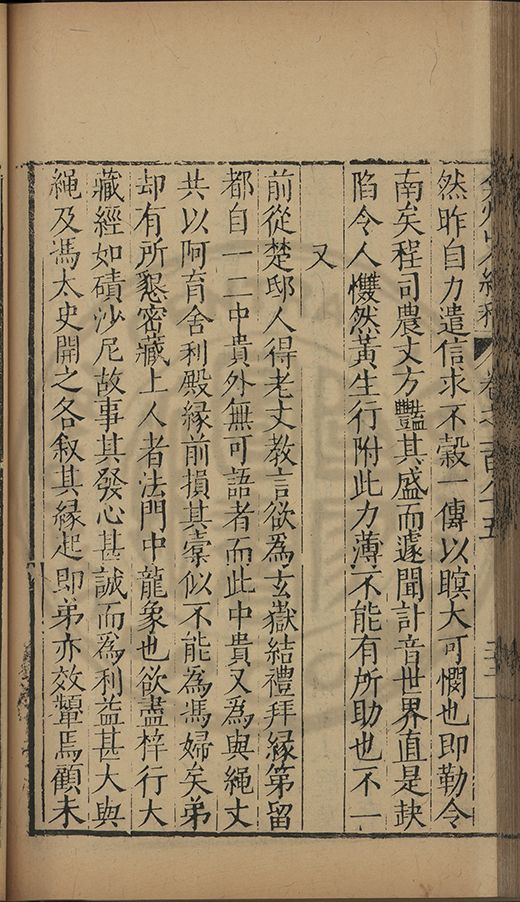 然昨自力遣信求不穀一傳以瞑大可憫也即勒令
南矣程司農丈方豔其盛而遽聞訃音世界直是缺
陷令人戄然黃生行附此力薄不能有所助也不一
又
前從楚邸人得老丈教言欲為玄嶽結禮拜緣第留
都自一二中貴外無可語者而此中貴又為與繩丈
共以阿育舍利殿緣前損其橐似不能為馮婦矣弟
却有所懇密藏上人者法門中龍象也欲盡梓行大
藏經如磧沙尼故事其發心甚誠而為利益甚大與
繩及馮太史開之各敘其緣起即弟亦效顰焉顧未